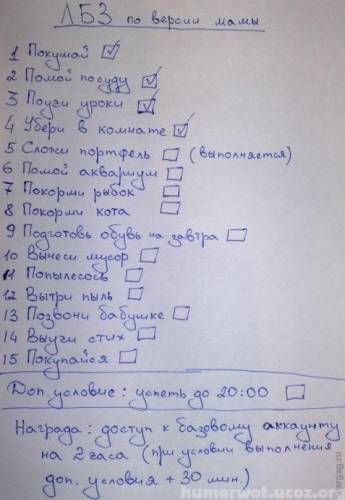 ЛБЗ по версии мамы
1 Покушай ☑
2 Помой посуду ☑
3 Поучи уроки ☑
4 Убери в комнате ☑
5 Сложи портфель ☐ (выполняется)
6 Помой аквариум ☐
7 Покорми рыбок ☐
8 Покорми кота ☐
9 Подготовь обувь на завтра ☐
10 Вынеси мусор ☐
11 Попылесось ☐
12 Вытри пыль ☐
13 Позвони бабушке ☐
14 Выучи стих ☐
15 Покупайся ☐
Доп. условие: успеть до 20:00 ☐
Награда: доступ к базовому аккаунту
на 2 часа (при условии выполнения
доп. условия + 30 мин.)
humorwot.ucoz.org